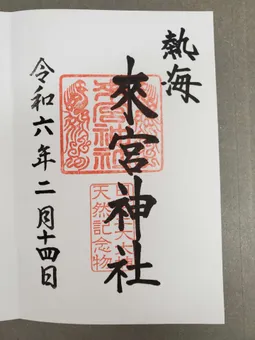 熱海
來宮神社
天然記念物
令和六年二月十四日